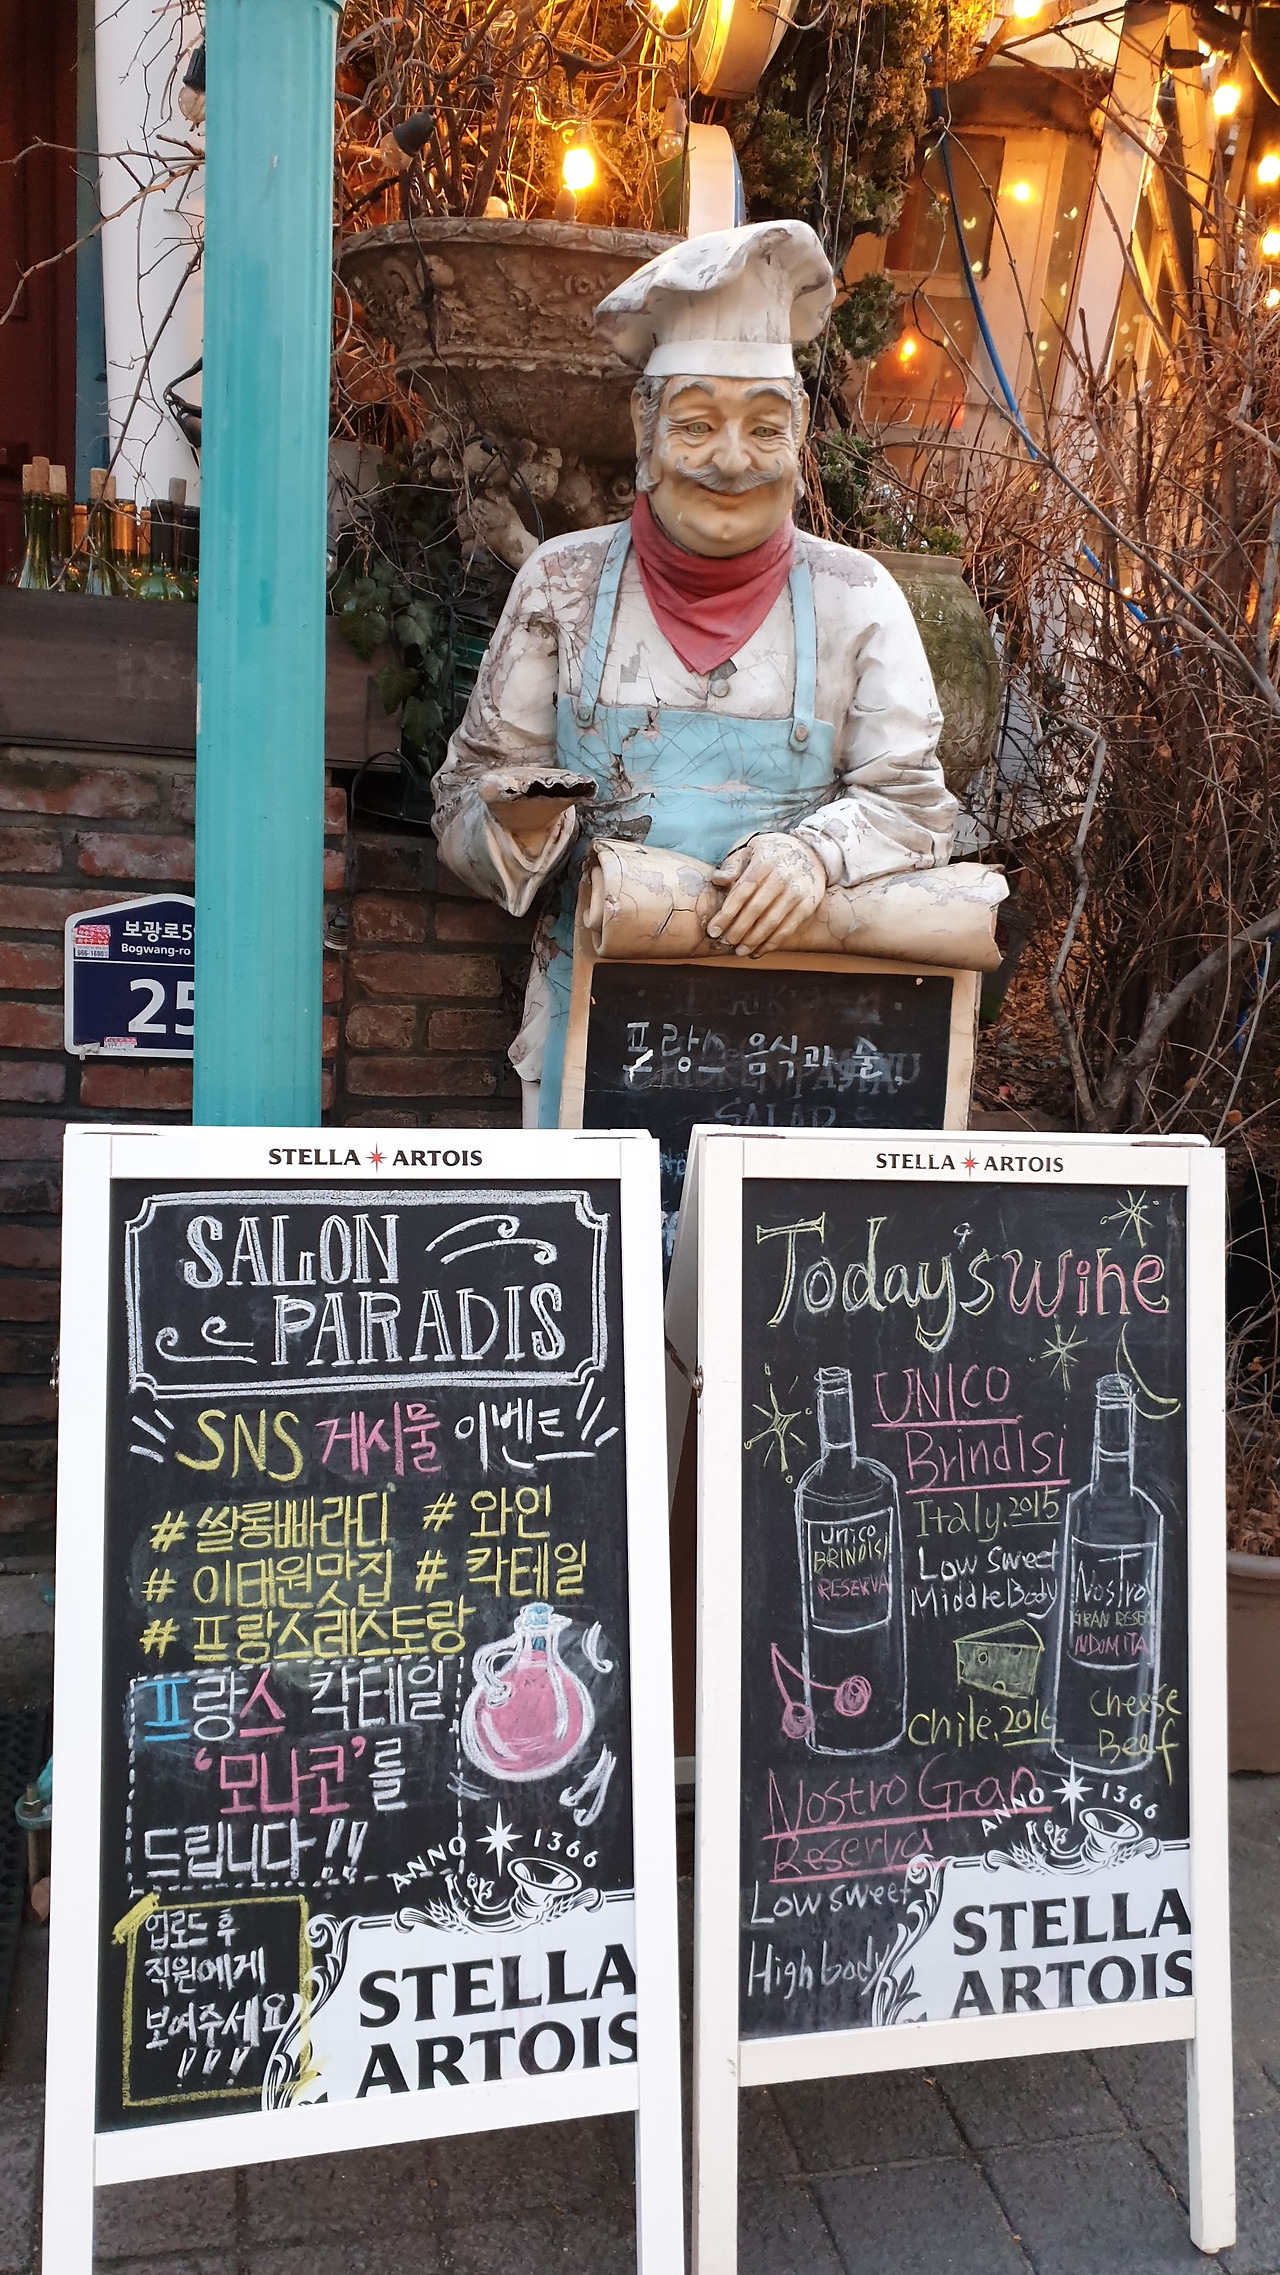 보광로5
Bogwang-ro
25
프랑스 음식과 술
SALAD
STELLA ARTOIS
SALON
PARADIS
SNS 게시물 이벤트
#쌀롱빠라디 #와인
#이태원맛집 #칵테일
#프랑스레스토랑
프랑스 칵테일
'모나코'를
드립니다!!
업로드 후
직원에게
보여주세요
!!!
ANNO 1366
STELLA
ARTOIS
STELLA ARTOIS
Today's wine
UNICO
BrindIsi
Italy.2015
Low Sweet
Middle Body
unico
BRINDISI
RESERVA
Nostro
GRAN RESE
NDOMITA
Chile.2016
Cheese
Beef
Nostro Gran
Reserva
Low sweet
High body
ANNO 1366
STELLA
ARTOIS